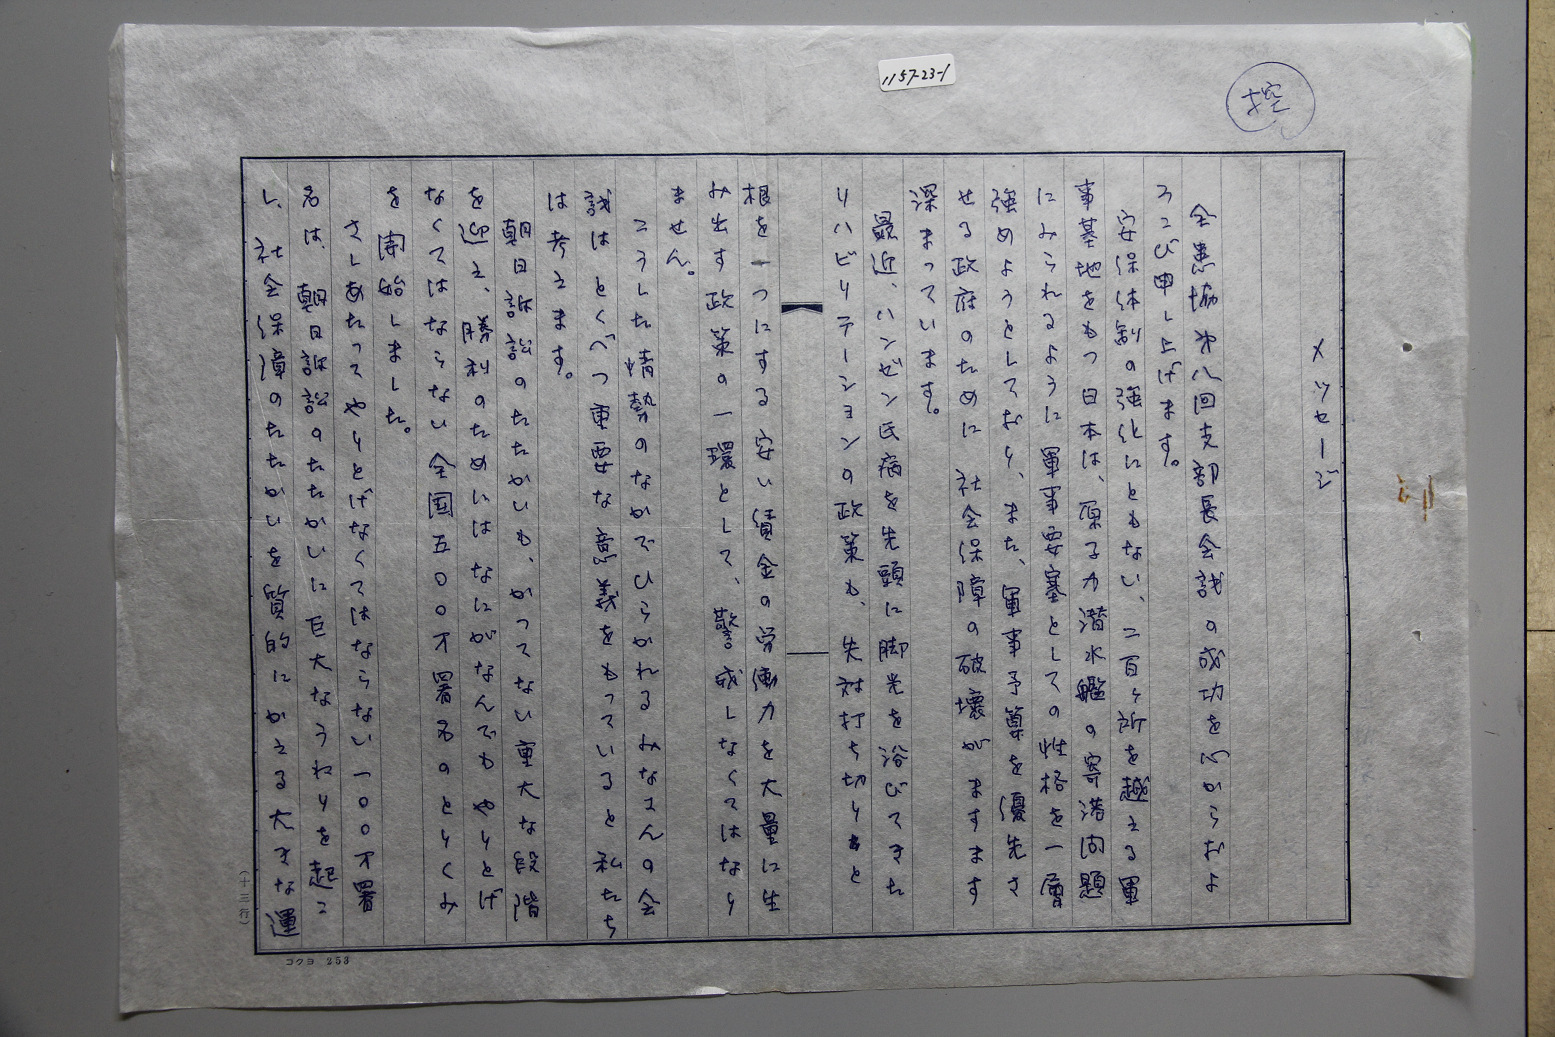 1157-23-1
控
メッセージ
全患協才八回支部長会議の成功を心からおよ
ろこび申し上げます。
安保体制の強化にともない、二百ヶ所を越える軍
事基地をもつ日本は、原子力潜水艦の寄港問題
にみられるように軍事要塞としての性格を一層
強めようとしており、また、軍事予算を優先さ
せる政府のために社会保障の破壊がますます
深まっています。
最近、ハンゼン氏病を先頭に脚光を浴びてきた
リハビリテーションの政策も、失対打ち切りと
根を一つにする安い賃金の労働力を大量に生
み出す政策の一環として、警戒しなくてはなり
ません。
こうした情勢のなかでひらかれるみなさんの会
議はとくべつ重要な意義をもっていると私たち
は考えます。
朝日訴訟のたたかいも、かつてない重大な段階
を迎え、勝利のためにはなにがなんでもやりとげ
なくてはならない全国五〇〇万署名のとりくみ
を開始しました。
さしあたってやりとげなくてはならない一〇〇万署
名は、朝日訴訟のたたかいに巨大なうねりを起こ
し、社会保障のたたかいを質的にかえる大きな運
(十三行)
コクヨ 253